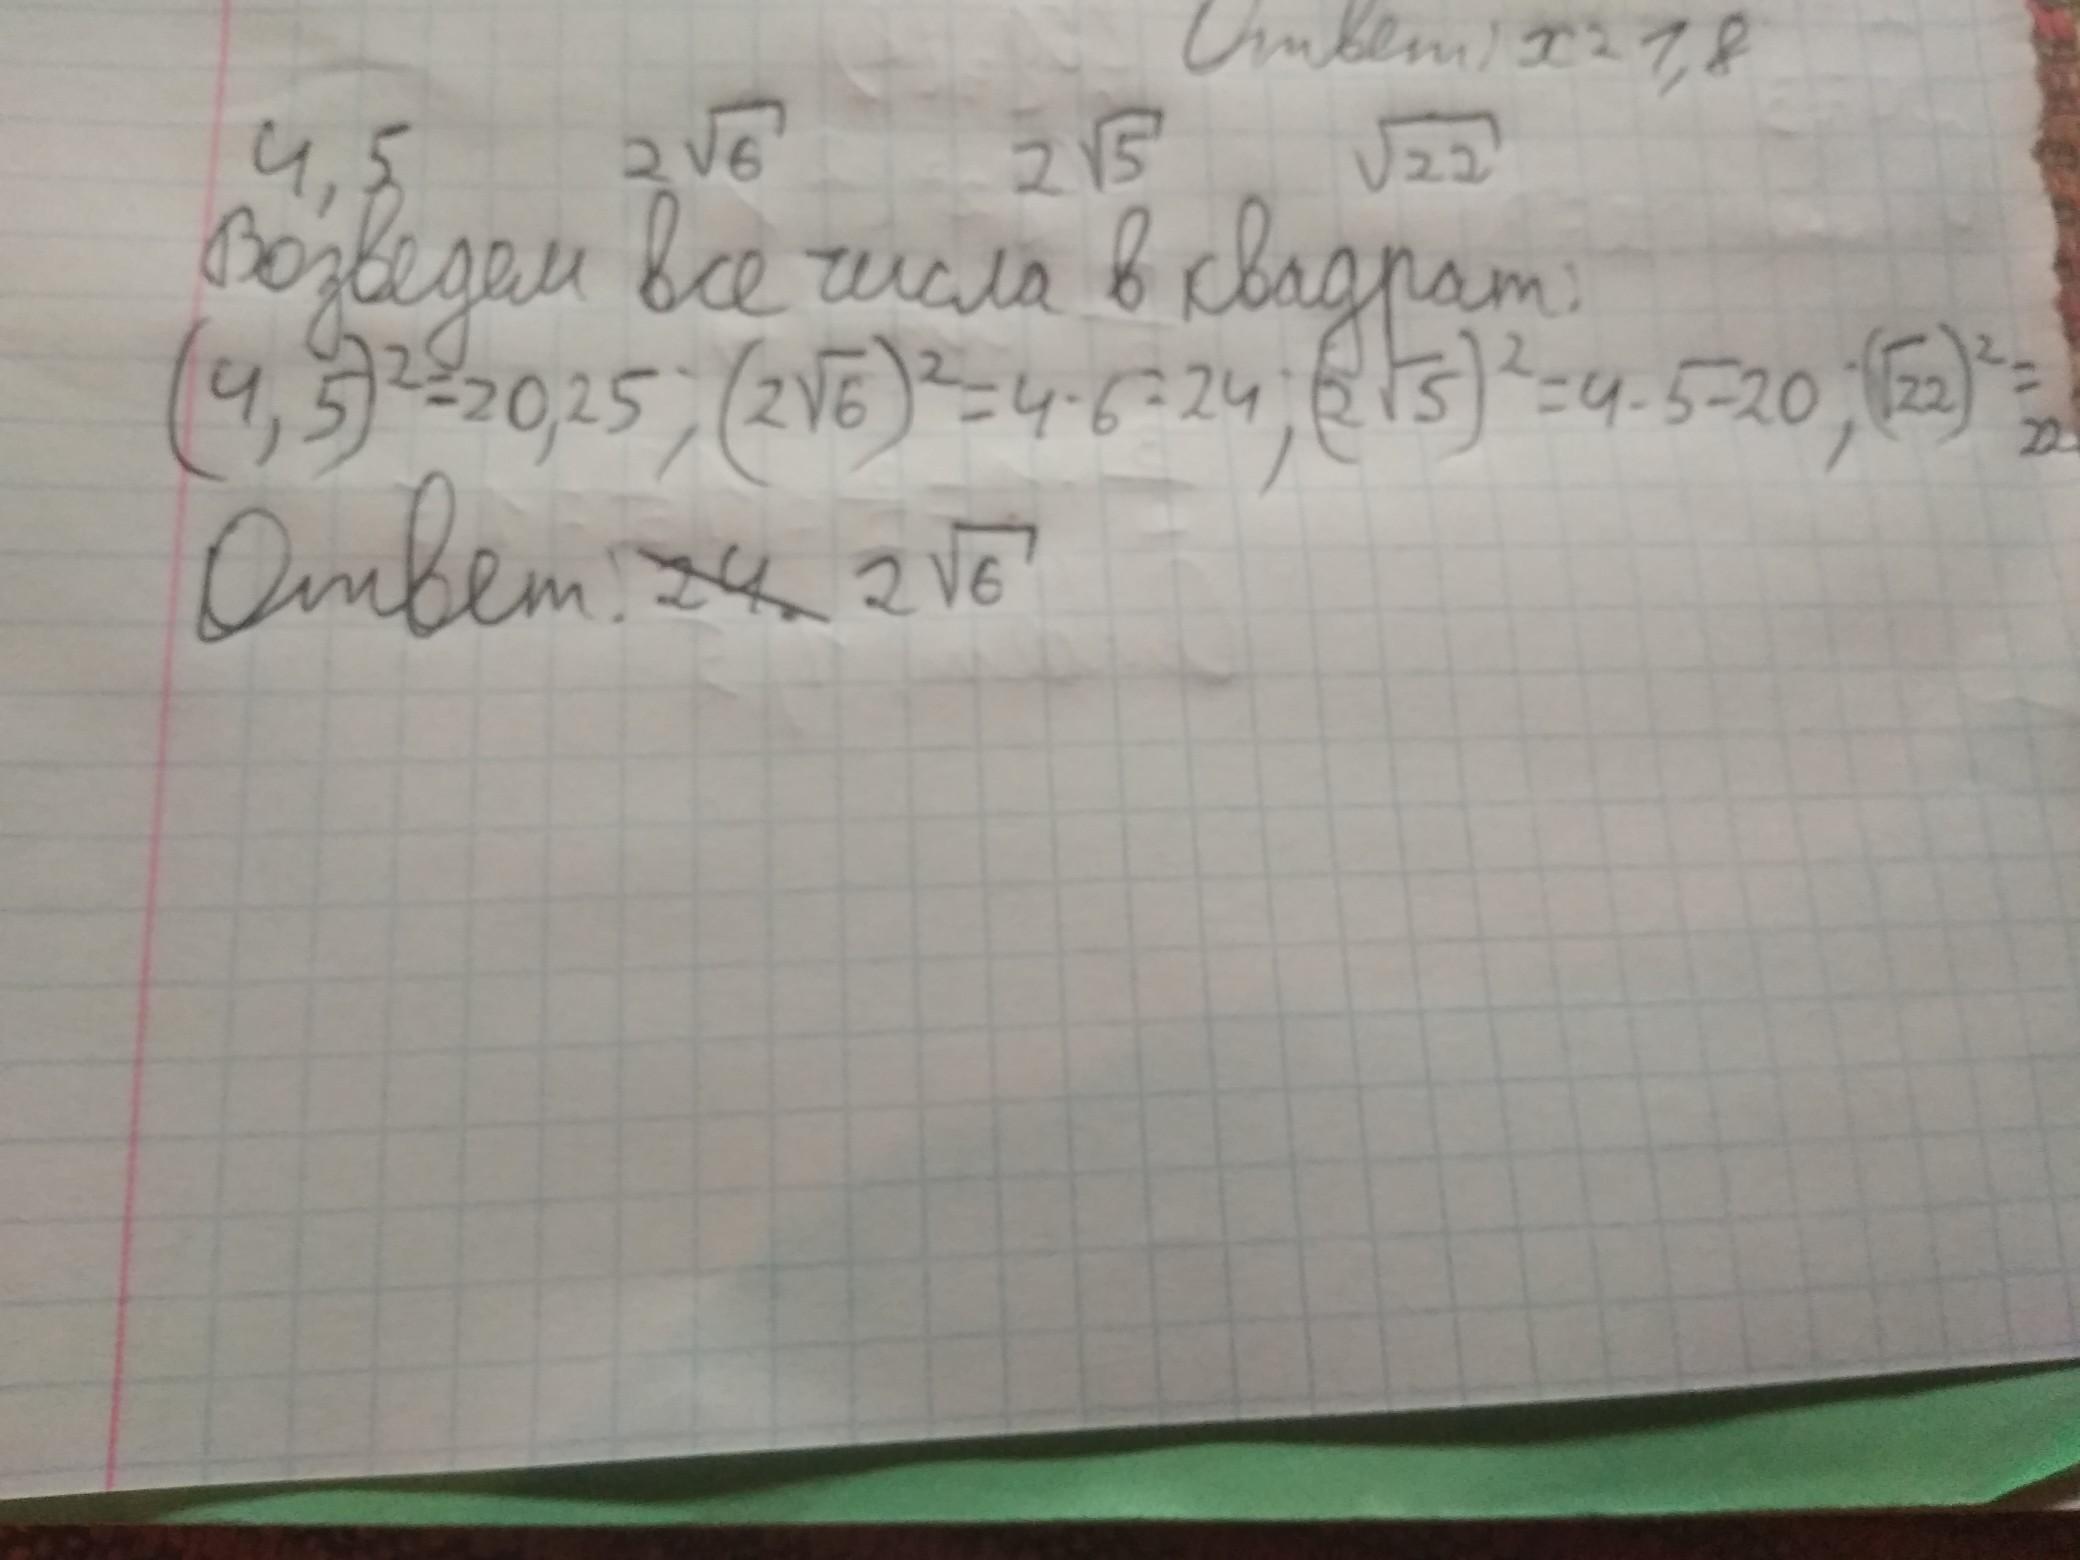 Ответ: x = 1,8
4,5 2√6 2√5 √22
Возведем все числа в квадрат:
(4,5)²=20,25; (2√6)²=4·6=24; (2√5)²=4·5=20; (√22)²=
22.
Ответ: 24. 2√6